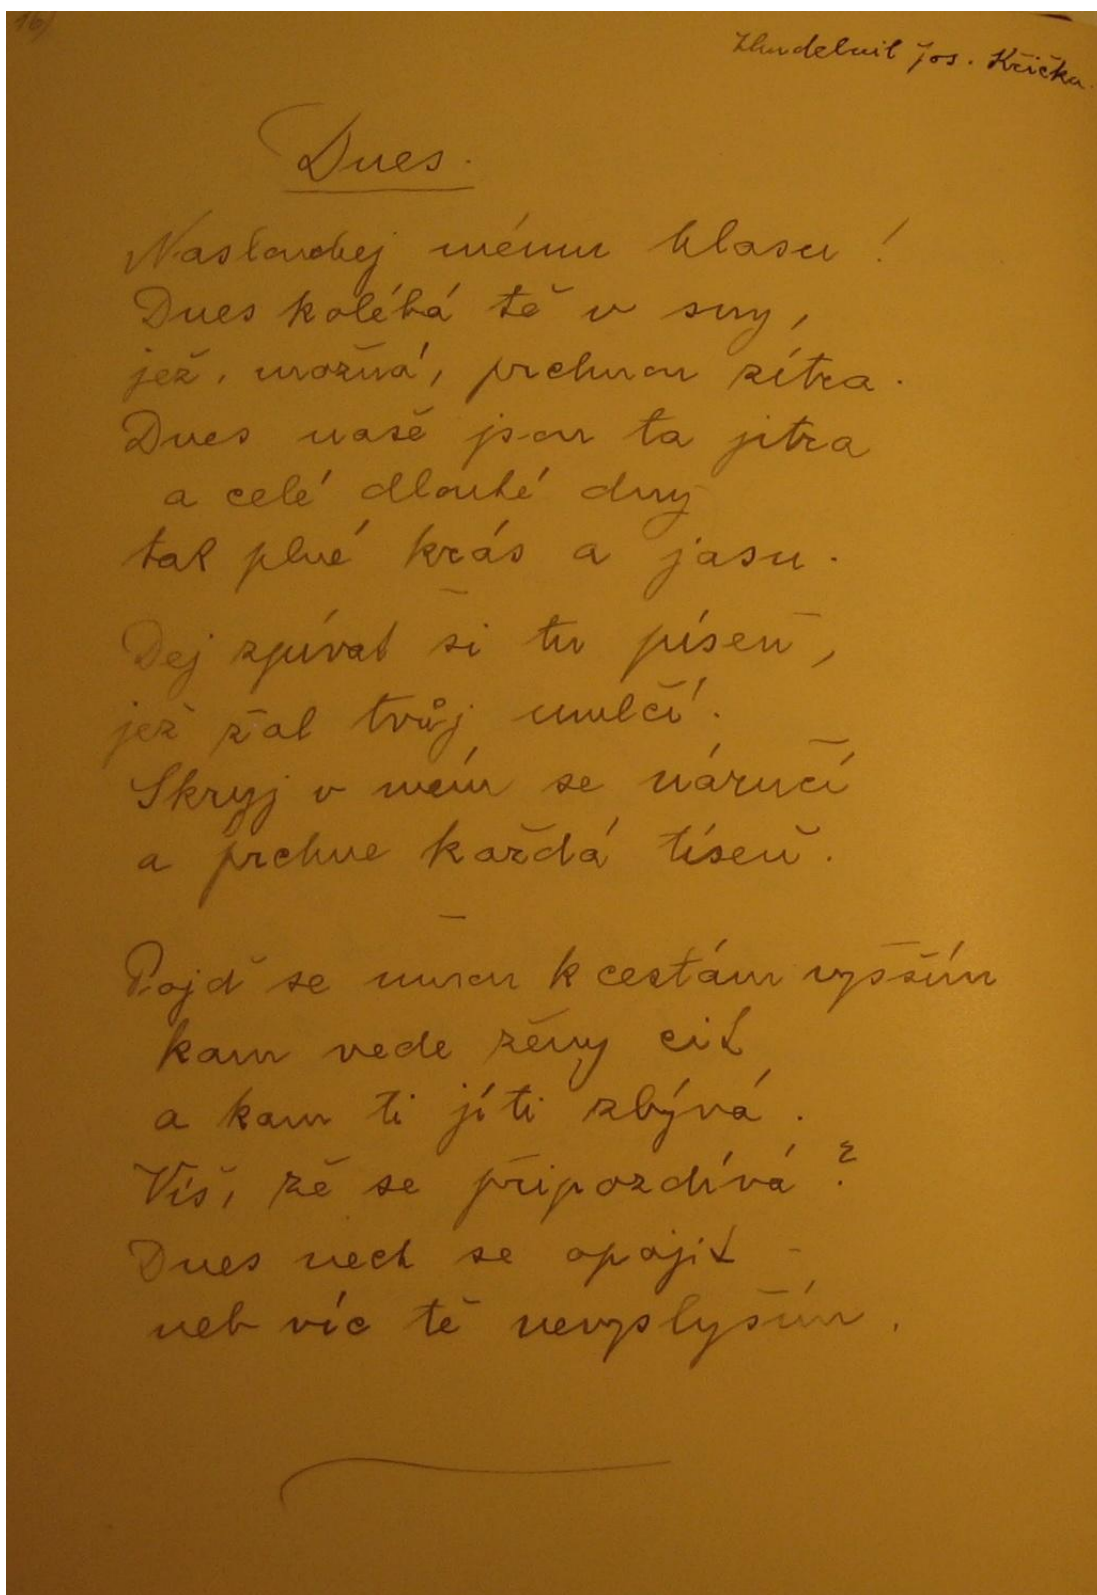 16)
Zhudebnil Jos. Křička.
Dnes.
Naslouchej mému hlasu!
Dnes kolébá tě v sny,
jež, možná, prchnou zítra.
Dnes naše jsou ta jitra
a celé dlouhé dny
tak plné krás a jasu.
Dej zpívat si tu píseň,
jež žal tvůj umlčí.
Skryj v mém se náručí
a prchne každá tíseň.
Pojď se mnou k cestám vyšším
kam vede ženy cit
a kam ti jíti zbývá.
Víš, že se připozdívá?
Dnes nech se opojit –
neb víc tě nevyslyším.